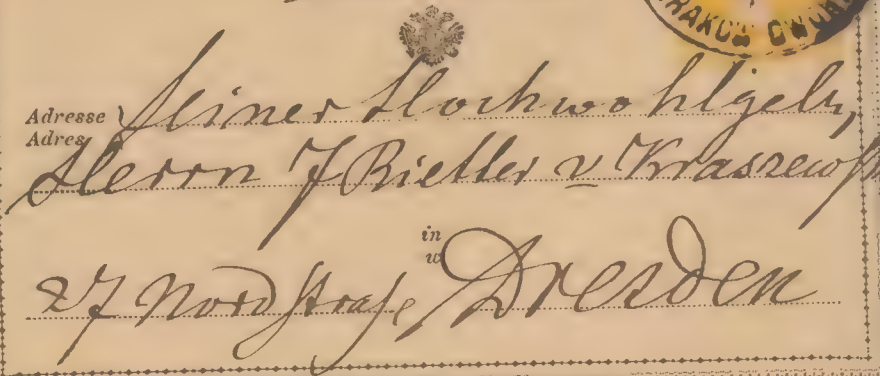 KRAKÓW DWORZ
Adresse
Adres
Seiner Hochwohlgeb,
Herrn J Rietter v Kraszewski
in
w
27 Nordstraße Dresden